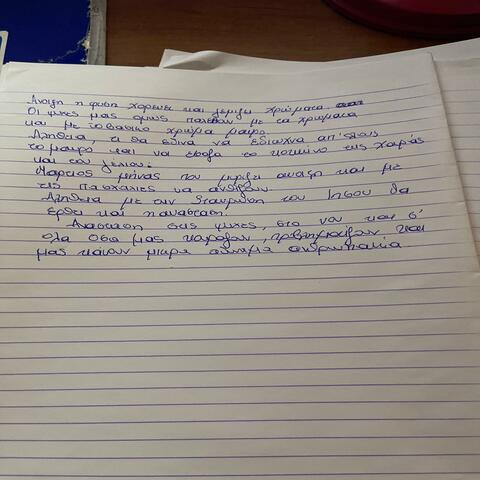 Άνοιξη η φύση χορεύει και γεμίζει χρώματα
Οι ψυχές μας όμως παίζουν με τα χρώματα
και με το βασικό χρώμα μαύρο
Αλήθεια, τι θα έδινα να έδιωχνα απ' όλους
το μαύρο και να έβαζα το κόκκινο της χαράς
και του γέλιου.
Μάρτιος μήνας που μυρίζει άνοιξη και με
τις πασχαλιές να ανθίζουν
Αλήθεια με την Σταύρωση του Ιησού θα
έρθει και η ανάσταση.
Ανάσταση στις ψυχές, στο ναι και σ'
όλα όσα μας χαράζουν, και
μας κάνουν μικρά ανθρωπάκια